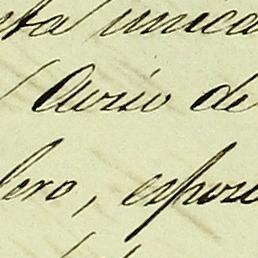 sta unica
Aviso de
lero, espos